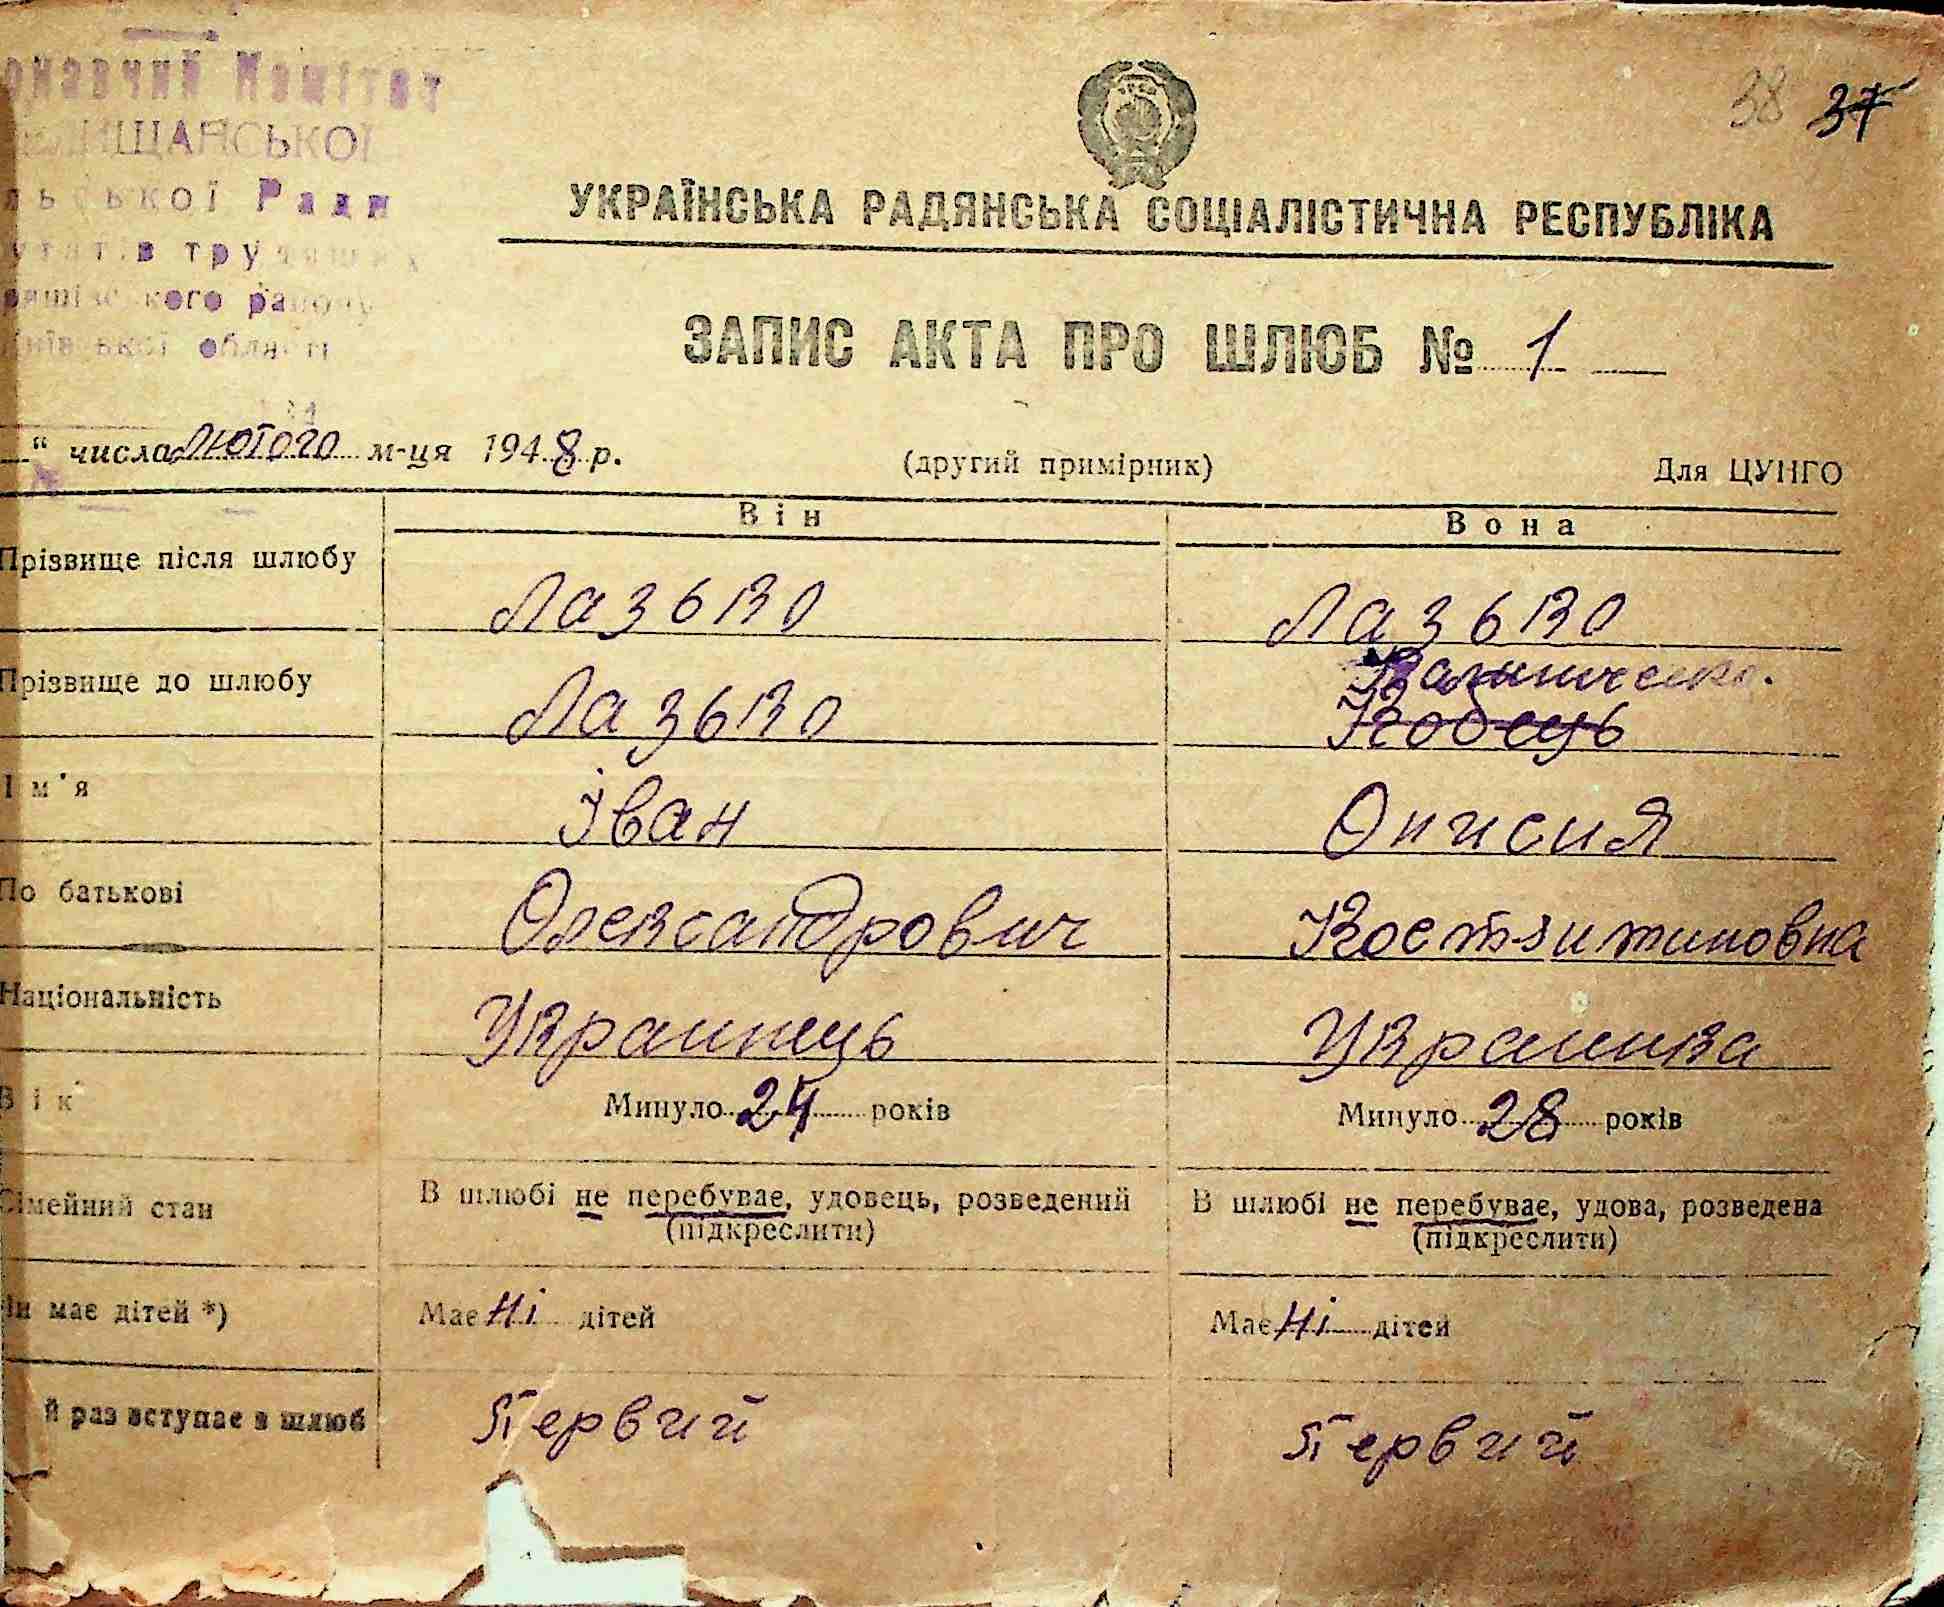 Комітет
ИЩАНСЬКОЇ
Ради
області
38 37
УКРАЇНСЬКА РАДЯНСЬКА СОЦІАЛІСТИЧНА РЕСПУБЛІКА
ЗАПИС АКТА ПРО ШЛЮБ № 1
“ числа лютого м-ця 1948 р. (другий примірник) Для ЦУНГО
Він Вона
Прізвище після шлюбу Лазько Лазько
Калниченко.
Прізвище до шлюбу Лазько Кобець
Ім'я Іван Онисия
По батькові Олександрович Костянтиновна
Національність Украинець Украинка
Вік Минуло 24 років Минуло 28 років
Сімейний стан В шлюбі не перебуває, удовець, розведений В шлюбі не перебуває, удова, розведена
(підкреслити) (підкреслити)
Чи має дітей *) Має Ні дітей Має Ні дітей
й раз вступає в шлюб Первий Первий